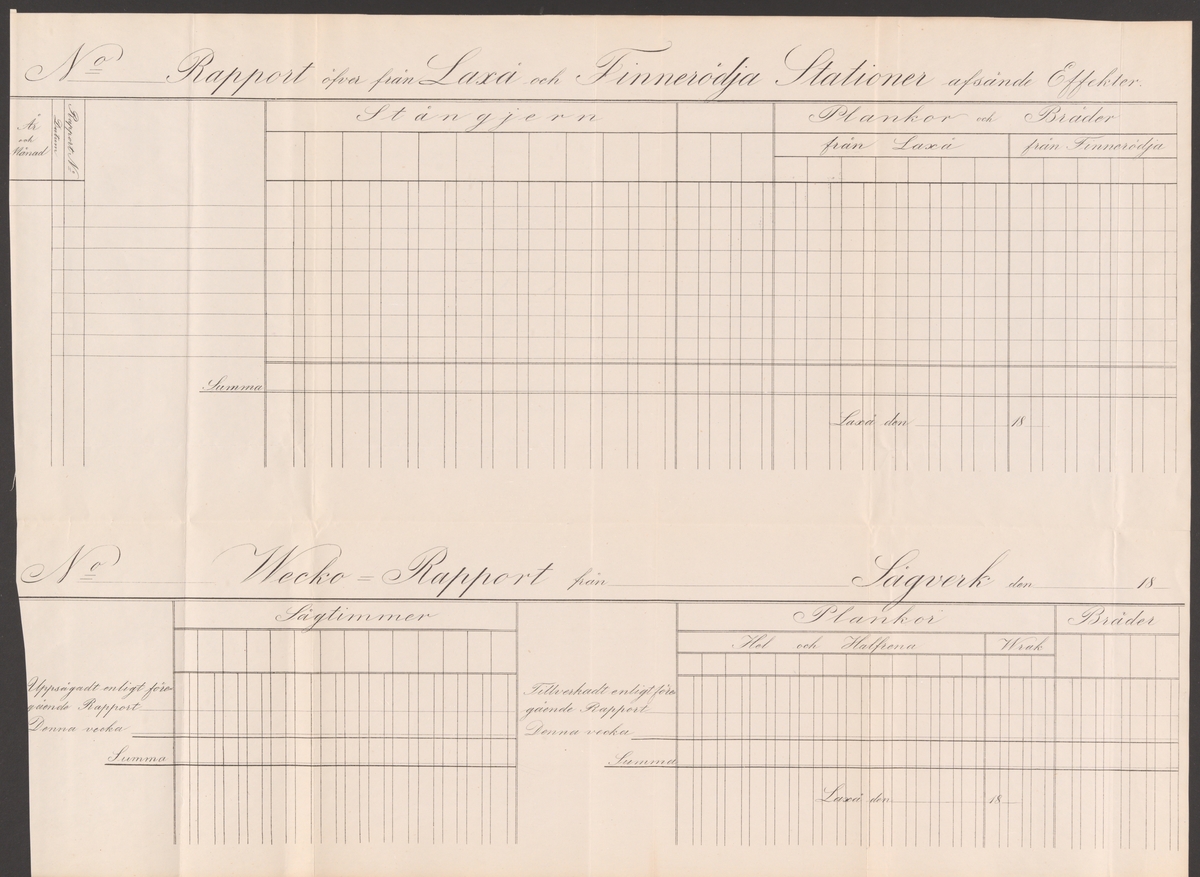 No Rapport öfver från Laxå och Finnerödja Stationer afsände Effekter.
År och Månad
Datum
Rapport No
Stångjern
Plankor och Bräder
från Laxå
från Finnerödja
Summa
Laxå den 18
No Wecko=Rapport från Sågverk den 18
Sågtimmer
Plankor
Bräder
Hel och Halfrena
Wrak
Uppsågadt enligt före-
gående Rapport
Denna vecka
Summa
Tillverkadt enligt före-
gående Rapport
Denna vecka
Summa
Laxå den 18